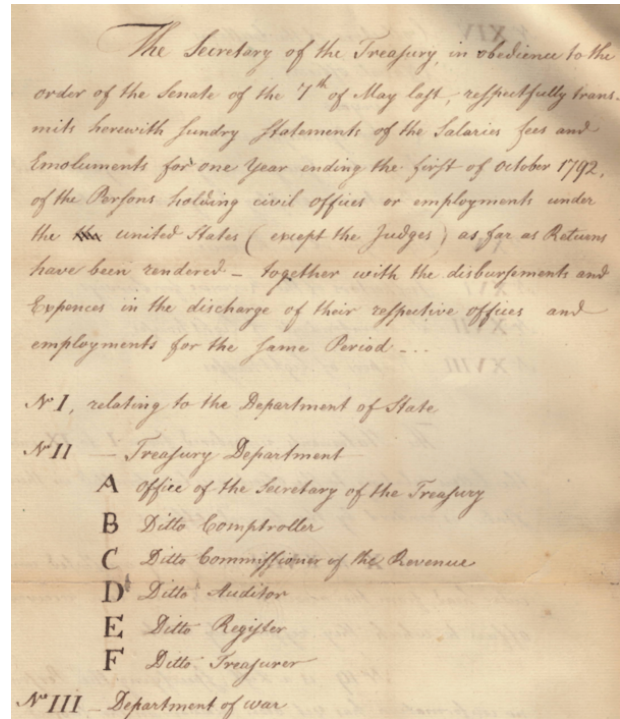 The Secretary of the Treasury, in obedience to the
order of the Senate of the 7th of May last, respectfully trans-
mits herewith sundry statements of the Salaries fees and
Emoluments for one Year ending the first of October 1792,
of the Persons holding civil offices or employments under
the united States (except the Judges) as far as Returns
have been rendered – together with the disbursements and
Expences in the discharge of their respective offices and
employments for the same Period –..
No I, relating to the Department of State
No II — Treasury Department
A office of the Secretary of the Treasury
B Ditto Comptroller
C Ditto Commissioner of the Revenue
D Ditto Auditor
E Ditto Register
F Ditto Treasurer
No III – Department of war